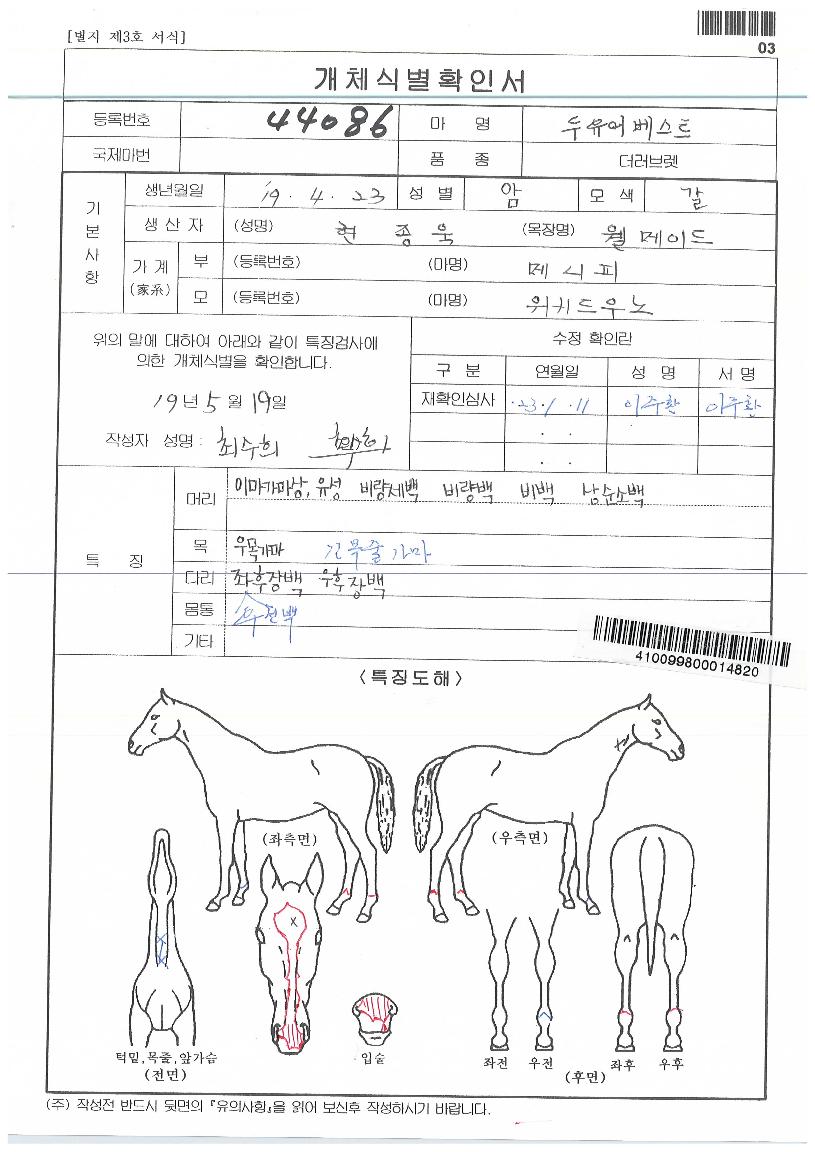 [별지 제3호 서식]
03
개체식별확인서
등록번호 44086 마 명 두유어베스트
국제마번 품 종 더러브렛
기본사항
생년월일 '19. 4. 23 성별 암 모색 갈
생산자 (성명) 현종욱 (목장명) 웰메이드
가계 (家系) 부 (등록번호) (마명) 메시피
모 (등록번호) (마명) 위키드우노
위의 말에 대하여 아래와 같이 특징검사에
의한 개체식별을 확인합니다.
19년 5월 19일
작성자 성명 : 최수희
수정 확인란
구 분 연월일 성 명 서 명
재확인심사 .23.1.11 이주환 이주환
. .
. .
특 징
머리 이마가마상, 유성 비량세백 비량백 비백 남순소백
목 우목가마 긴목줄가마
다리 좌후장백 우후장백
몸통 우전백
기타
410099800014820
<특징도해>
(좌측면) (우측면)
턱밑,목줄,앞가슴
(전면)
입술
좌전 우전 좌후 우후
(후면)
(주) 작성전 반드시 뒷면의 『유의사항』을 읽어 보신후 작성하시기 바랍니다.